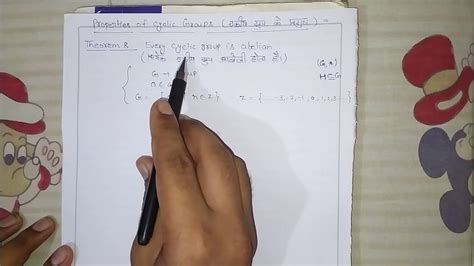 Properties of Cyclic Groups (चक्रीय ग्रुप के प्रगुण) :-
Theorem Every cyclic group is abelian
(प्रत्येक चक्रीय ग्रुप आबेली होता है।)
(G,*)
G → 
H⊆G
G = { n ∈ Z} Z = {.... -3,-2,-1,0,1,2,3...